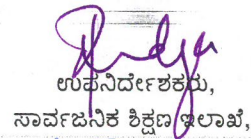 ಉಪನಿರ್ದೇಶಕರು,
ಸಾರ್ವಜನಿಕ ಶಿಕ್ಷಣ ಇಲಾಖೆ,